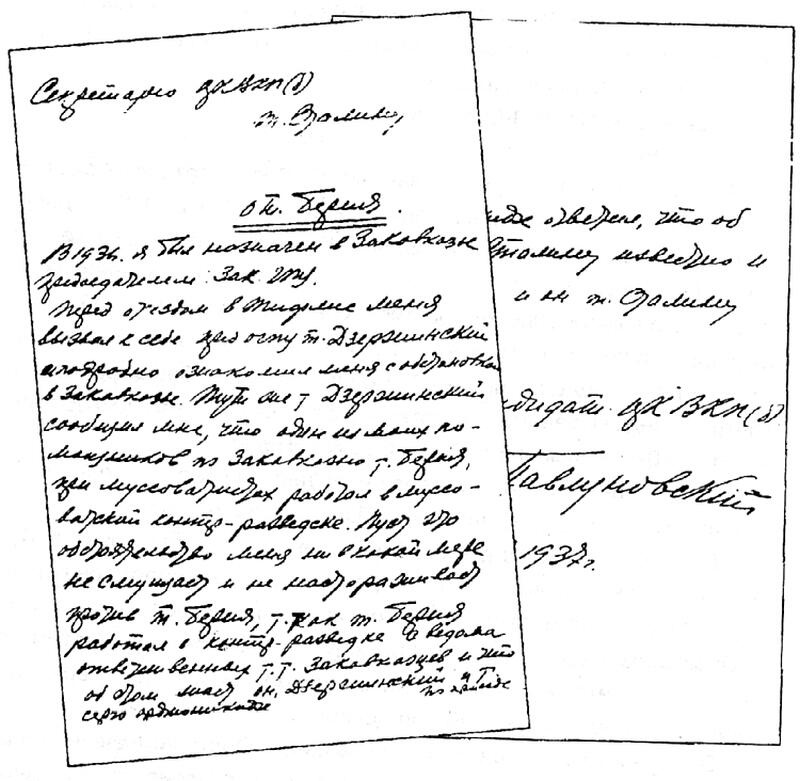 Секретарю ЦК ВКП(б)
т. Сталину
о т. Берия.
В 1926г. я был назначен в Закавказье
председателем Зак. ГПУ.
Перед отъездом в Тифлис меня
вызвал к себе пред ОГПУ т. Дзержинский
и подробно ознакомил меня с обстановкой
в Закавказье. Тут же т Дзержинский
сообщил мне, что один из моих по-
мощников по Закавказью т. Берия,
при муссаватистах работал в мусса-
ватской контр-разведке. Пусть это
обстоятельство меня ни в какой мере
не смущает и не настораживает
против т. Берия, т. как т. Берия
работал в контр-разведке с ведома
ответственных т.т. Закавказцев и что
об этом знает он, Дзержинский и т.
серго орджоникидзе
по приезде
идзе ответил, что об
Сталину известно и
и он т. Сталину
ндидат ЦК ВКП(б)
Павлуновский
1937г.